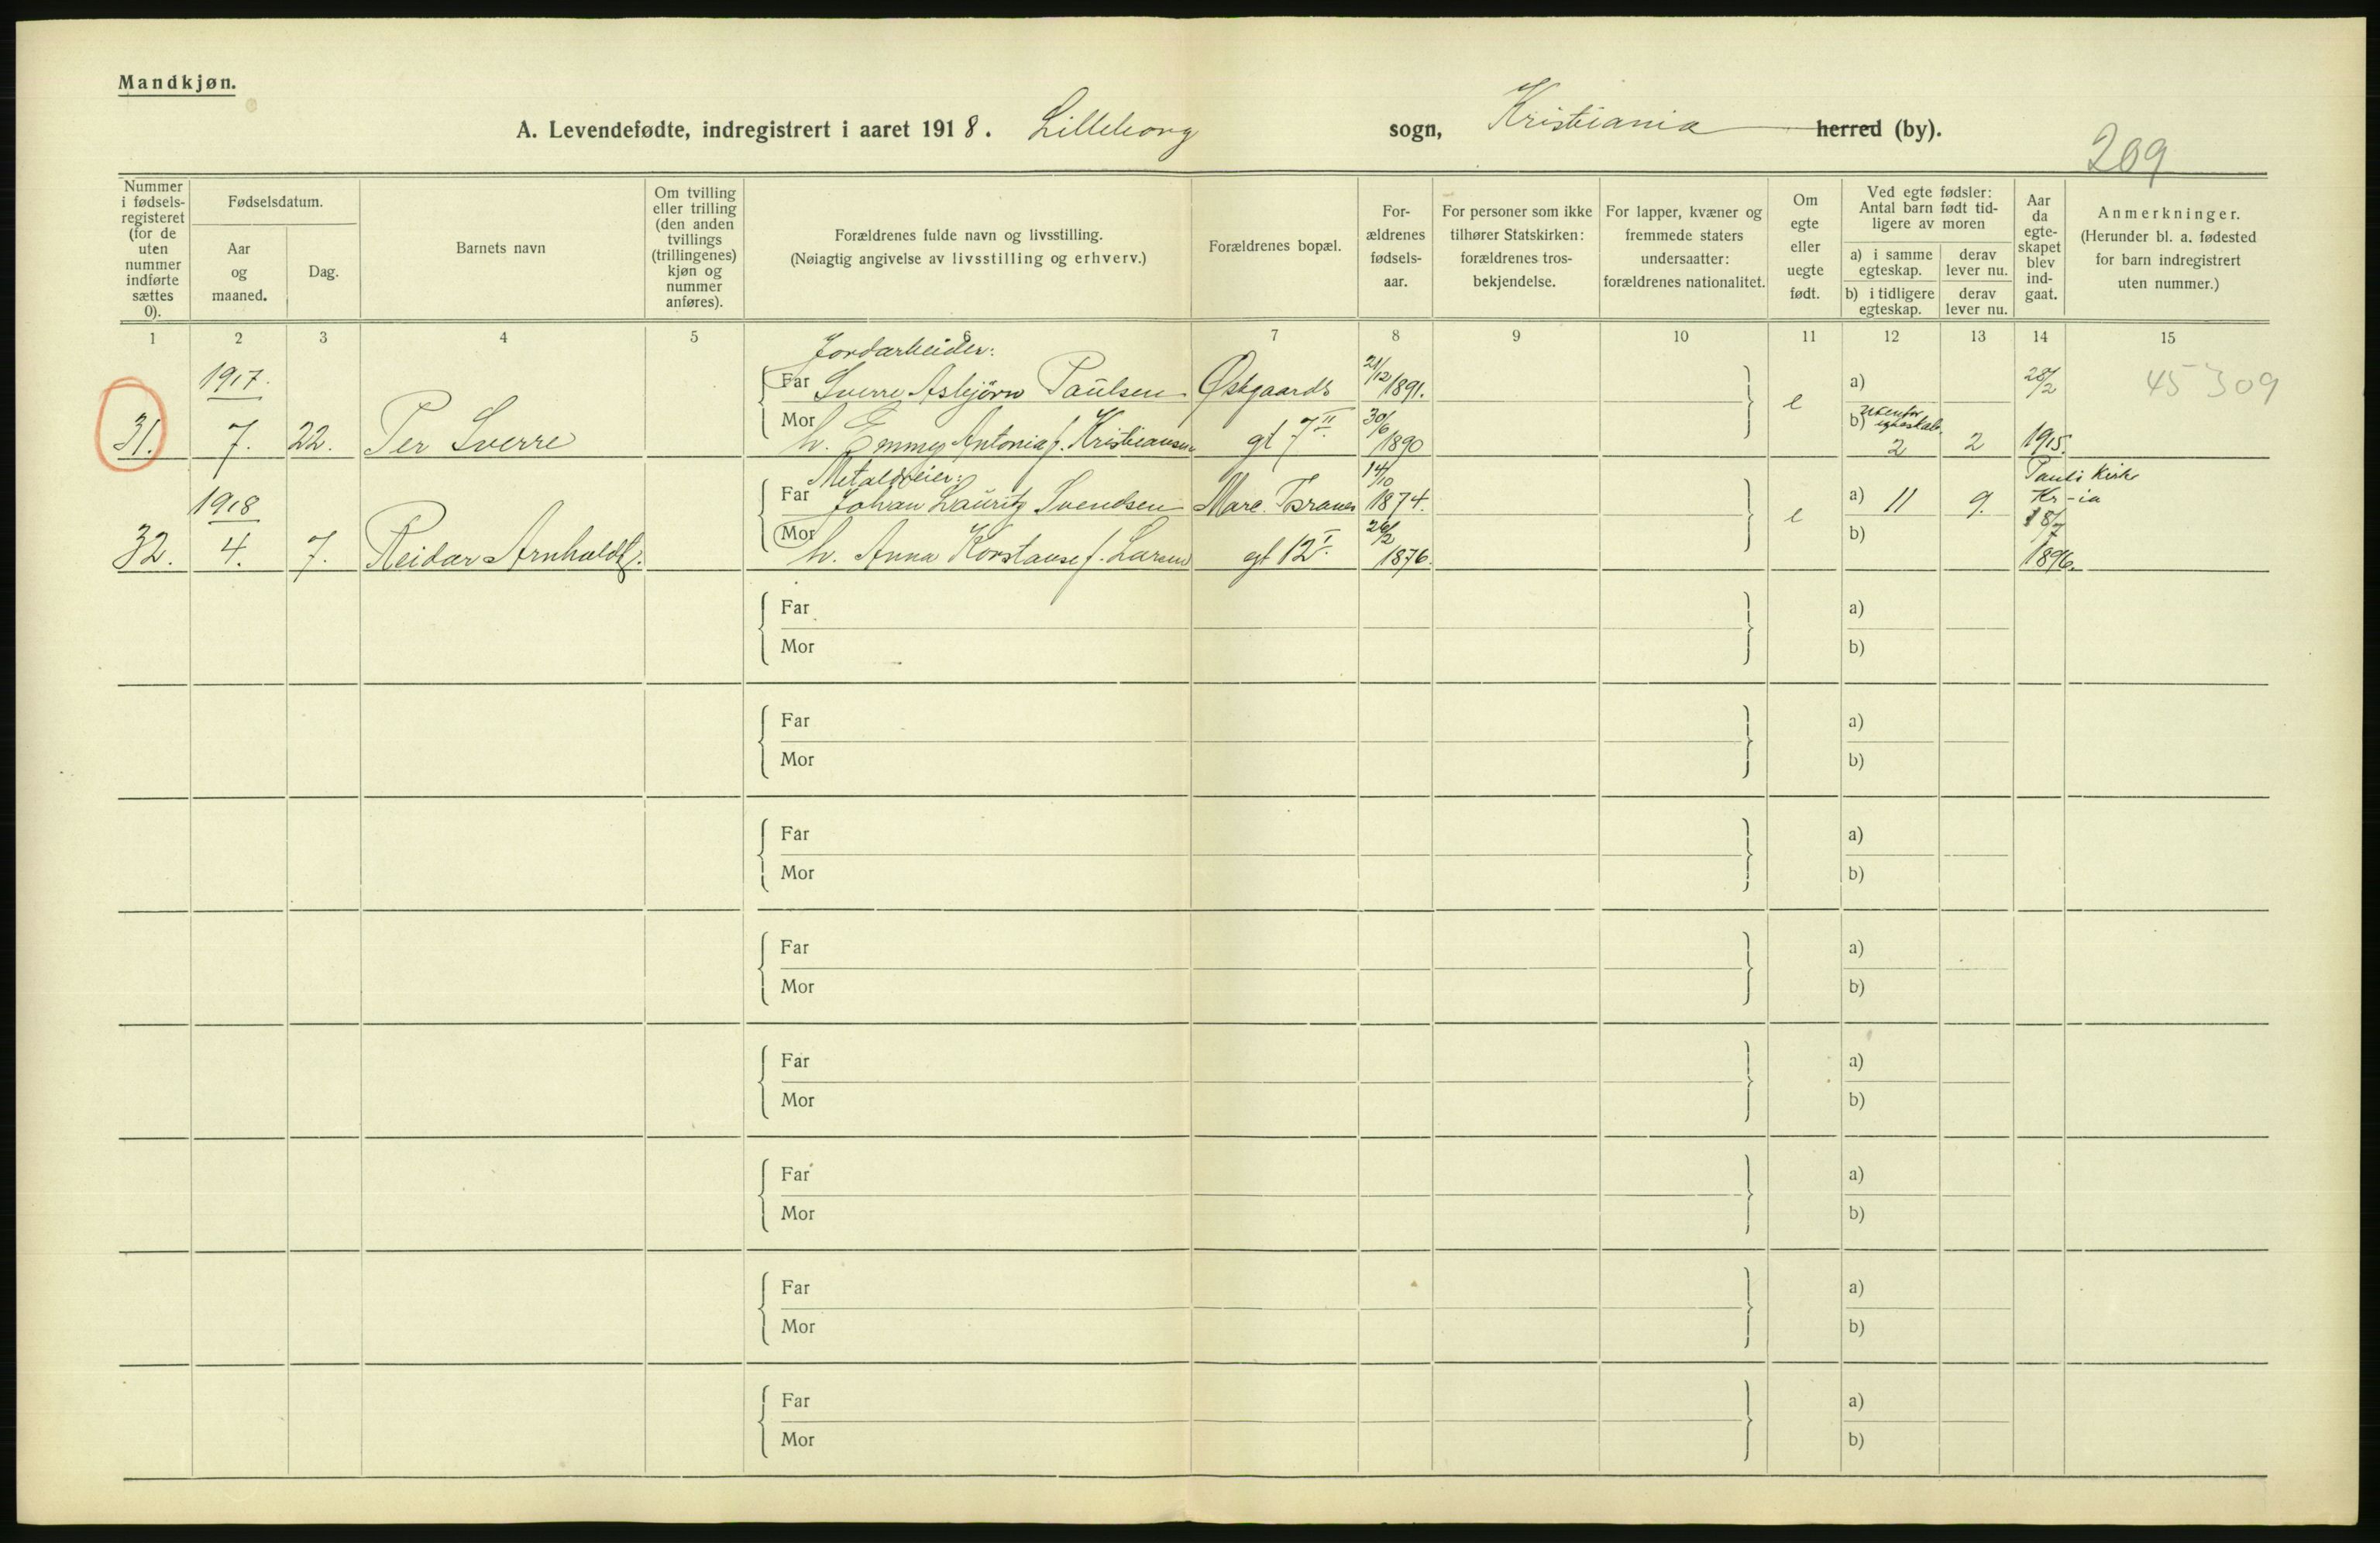 Mandkjøn.
A. Levendefødte, indregistrert i aaret 1918. Lilleborg sogn, Kristiania herred (by).
209
Nummer i fødsels-registeret (for de uten nummer indførte sættes 0).
Fødselsdatum.
Aar og maaned.
Dag.
Barnets navn
Om tvilling eller trilling (den anden tvillings (trillingenes) kjøn og nummer anføres).
Forældrenes fulde navn og livsstilling.
(Nøiagtig angivelse av livsstilling og erhverv.)
Forældrenes bopæl.
For-ældrenes fødsels-aar.
For personer som ikke tilhører Statskirken: forældrenes tros-bekjendelse.
For lapper, kvæner og fremmede staters undersaatter: forældrenes nationalitet.
Om egte eller uegte født.
Ved egte fødsler: Antal barn født tid-ligere av moren
a) i samme egteskap.
derav lever nu.
b) i tidligere egteskap.
derav lever nu.
Aar da egte-skapet blev ind-gaat.
Anmerkninger.
(Herunder bl. a. fødested for barn indregistrert uten nummer.)
1 2 3 4 5 6 7 8 9 10 11 12 13 14 15
Jordarbeider:
1917. Far Sverre Asbjørn Paulsen Østgaards 21/12 1891. a) 28/2 45309
31. 7. 22. Per Sverre Mor h. Emmy Antonia f. Kristiansen gt 7 II. 30/6 1890 e b) utenfor egteskab. 2 2 1915.
Metaldreier: Pauli Kirke
1918 Far Johan Lauritz Svendsen Marc. Thranes 14/10 1874. a) 11 9. Kr-ia
32. 4. 7. Reidar Arnholdt. Mor h. Anna f. gt 12 I. 26/2 1876. e b) 18/7 1896.
Far a)
Mor b)
Far a)
Mor b)
Far a)
Mor b)
Far a)
Mor b)
Far a)
Mor b)
Far a)
Mor b)
Far a)
Mor b)
Far a)
Mor b)